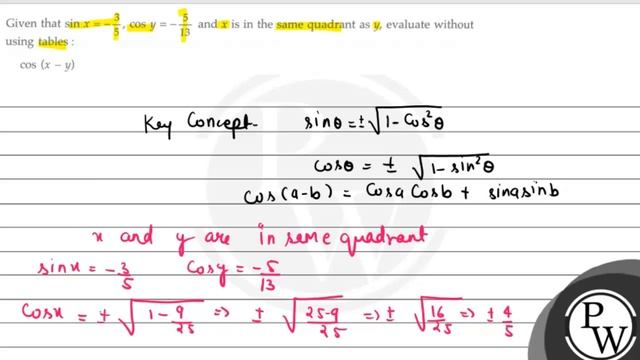 Given that sin x = −3/5, cos y = −5/13 and x is in the same quadrant as y, evaluate without
using tables :
cos (x − y)
Key Concept- sinθ = ± √(1 − cos²θ)
cosθ = ± √(1 − sin²θ)
cos(a-b) = cosa cosb + sina sinb
x and y are in same quadrant
sinx = −3/5 cosy = −5/13
cosx = ± √(1 − 9/25) => ± √((25-9)/25) => ± √(16/25) => ± 4/5
PW